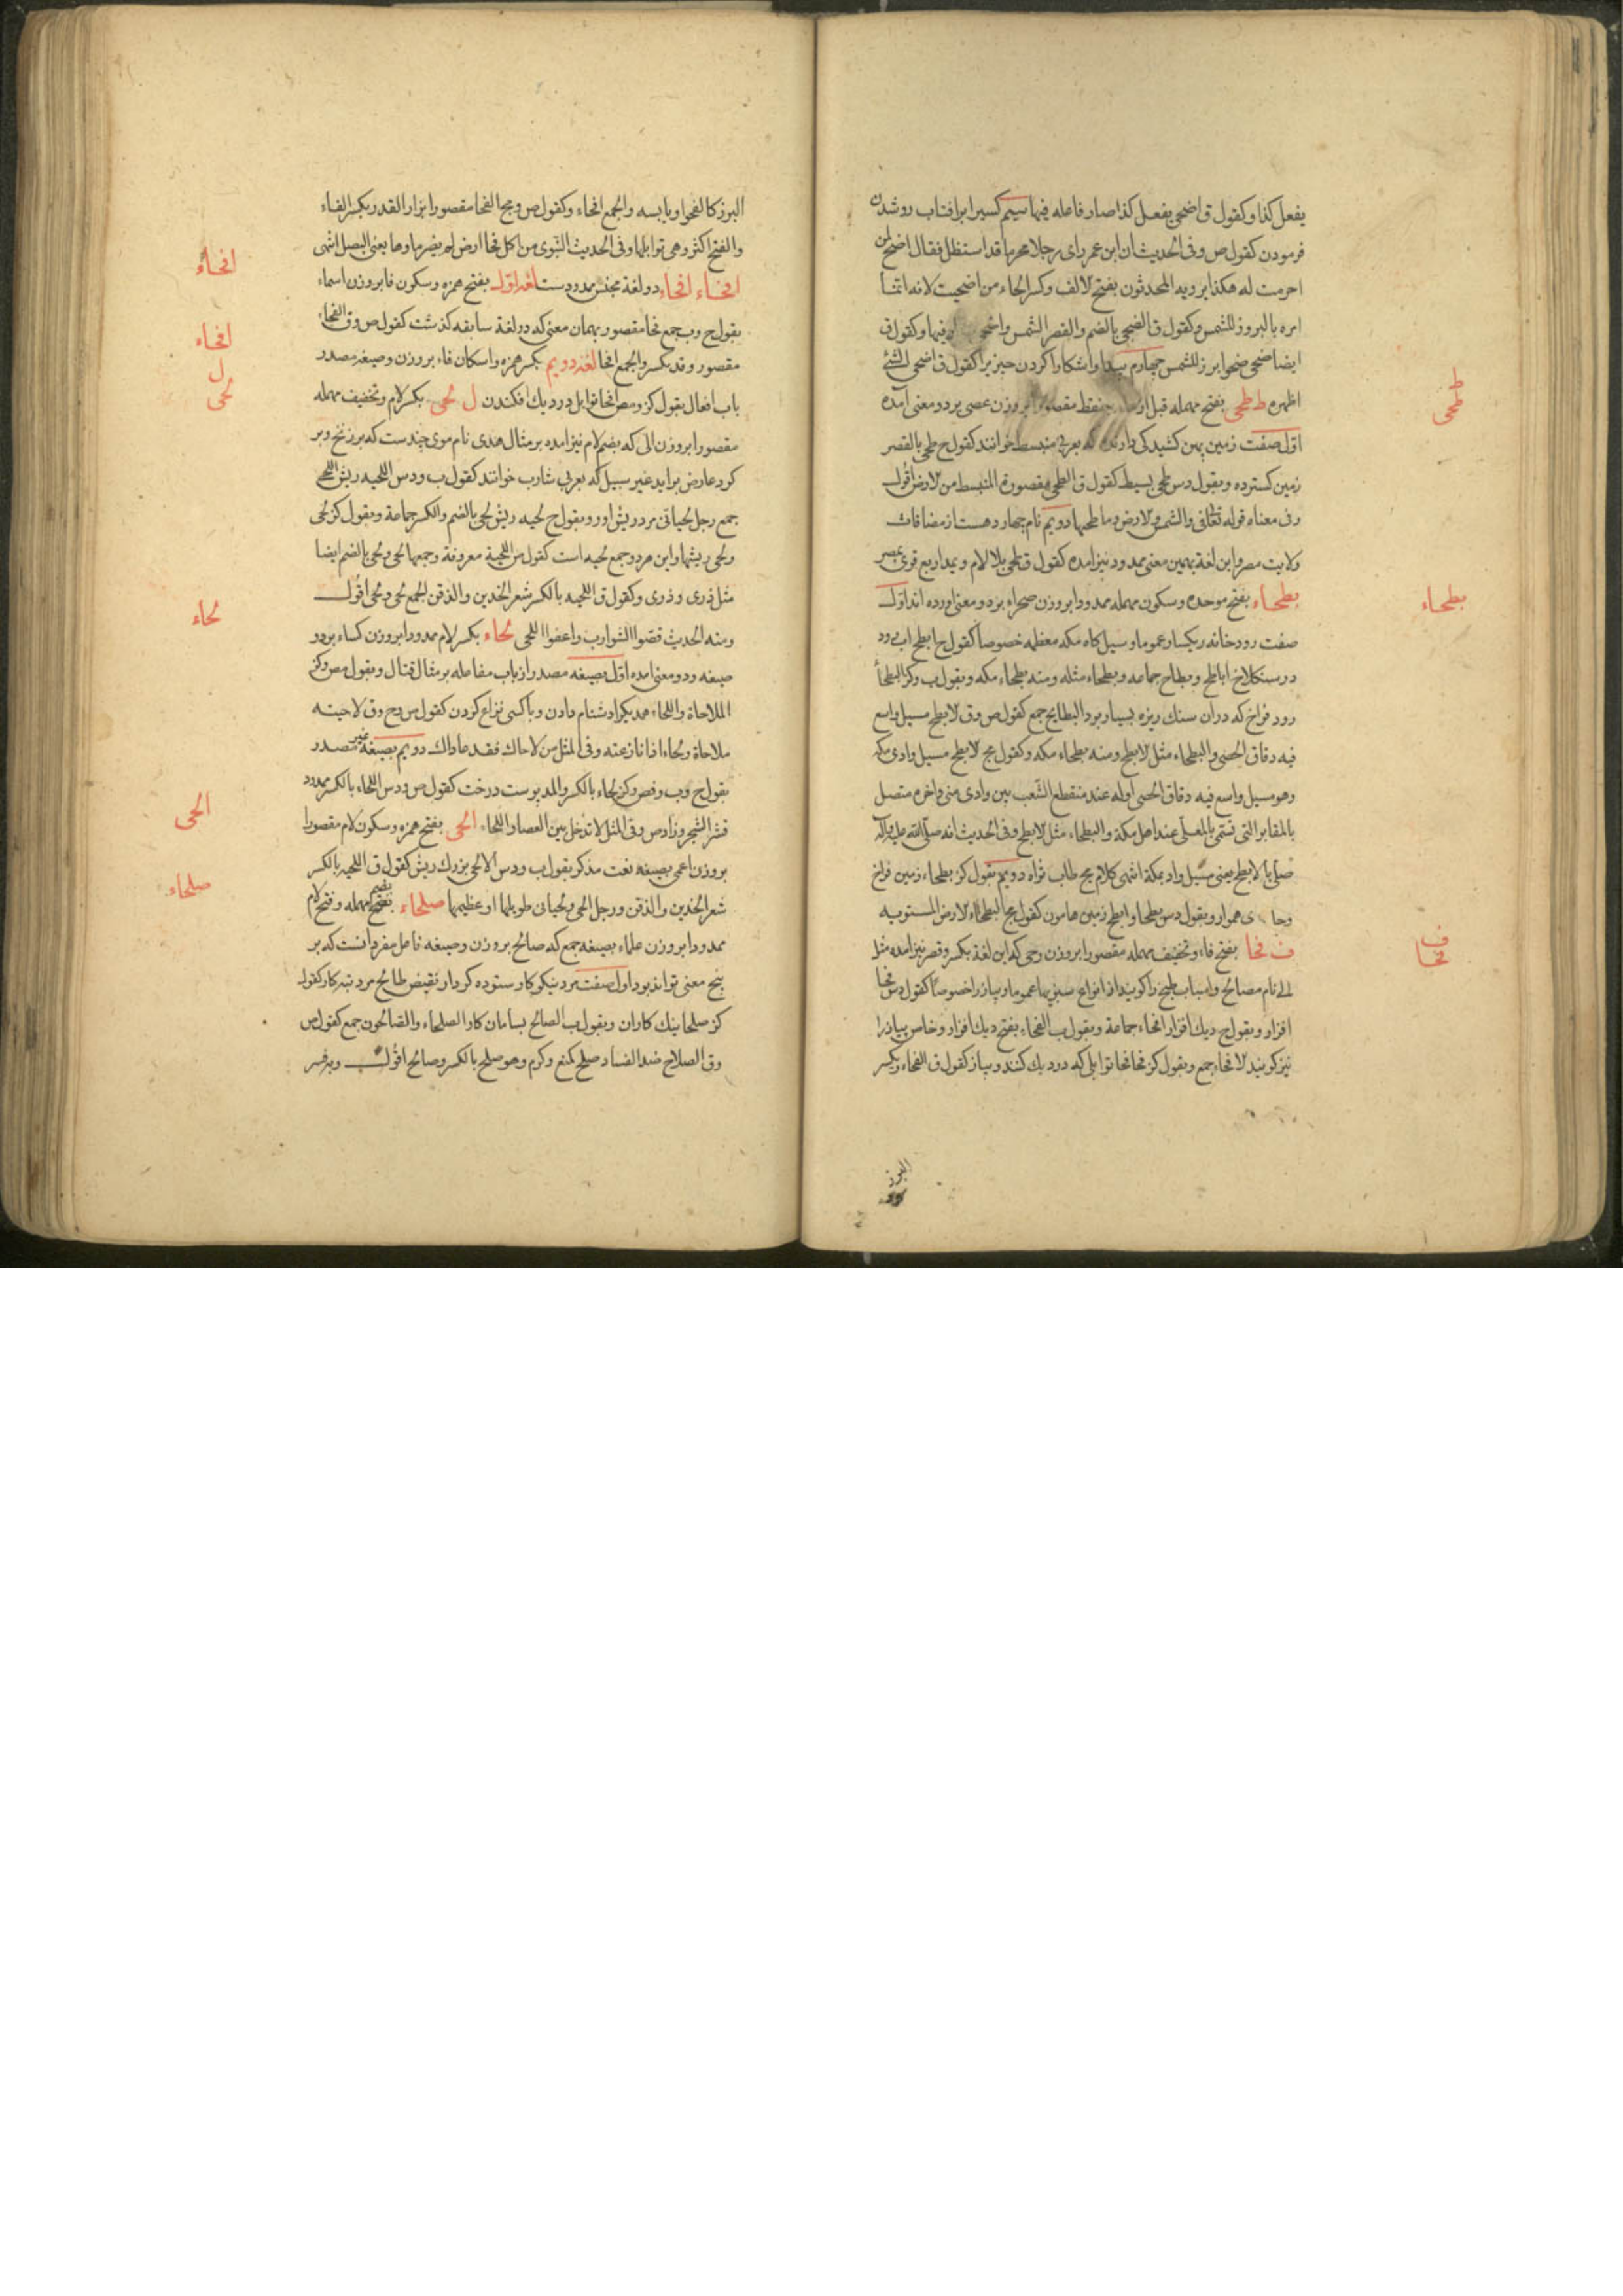 یفعل کذا وکقول ق اضحی یفعل کذا صار فاعله فیها سیم کسیرا برافتاب روشدن
فرمودن کقول ص وفی الحدیث ان ابن عمر رای رجلا محرما قد استظل فقال اضح لمن
احرمت له هکذا یرویه المحدثون بفتح الالف وکسر الحاء من اضحیت لانه انما
امره بالبروز للشمس وکقول ق الضحی بالضم والقصر الشمس واضحی فیها وکقول ق
ایضا ضحی ضحوا برز للشمس چهارم پیدا واشکارا کردن چیز یرا کقول ق اضحی الشئ
اظهره ط طحی بفتح مهمله قبل از بینقط مقصورا بروزن عصی بر دو معنی آمده
اول صفت زمین پهن کشید کی دارنده که بعربی منبسط خوانند کقول ج طحی بالقصر
زمین کسترده وبقول دس طحی بسیط کقول ق الطحی مقصورة المنبسط من الارض اقول
وفی معناه قوله تعالی والشمس والارض وما طحیها دویم نام چهار دهست از مضافات
ولایت مصر واین لغة بهمین معنی ممدود نیز امده کقول ق طحی بلا لام ویمد اربع قری بمصر
بطحاء بفتح موحده وسکون مهمله ممدودا بروزن صحراء بر دو معنی اورده اند اول
صفت رودخانه ریکسار عموما وسیل کاه مکه معظمه خصوصا کقول ج ابطح اب رود
در سنکلاخ اباطح وبطاح جماعه وبطحاء مثله ومنه بطحاء مکه وبقول ب وکز البطحاء
رود فراخ که دران سنك ریزه بسیار بود البطایح جمع کقول ص وق الابطح مسیل واسع
فیه دقاق الحصی والبطحاء مثل الابطح ومنه بطحاء مکه وکقول مج الابطح مسیل وادی مکه
وهو مسیل واسع فیه دقاق الحصی اوله عند منقطع الشعب بین وادی منی واخره متصل
بالمقابر التی تسمی بالمعلی عند اهل مکة والبطحاء مثل الابطح وفی الحدیث انه صلی الله علیه واله
صلی بالابطح یعنی مسیل واد بمکة انتهی کلام مج طاب ثراه دویم بقول کز بطحاء زمین فراخ
وجا ی هموار وبقول دس بطحا وابطح زمین هامون کقول مج البطحاء الارض المستویه
ف فحا بفتح فاء وتخفیف مهمله مقصورا بروزن رحی که این لغة بکسر وقصر نیز امده مثل
الی نام مصالح واسباب طبخ را کویند از انواع سبزیها عموما وپیاز را خصوصا کقول دس فحا
افزار وبقول ج دیك افزار افحاء جماعة وبقول ب الفحاء بفتح دیك افزار وخاص پیاز را
نیز کویند الافحاء جمع وبقول کز فحا فحا توابلی که در دیك کنند وپیاز کقول ق الفحاء ویکسر
البزر
طحی
بطحاء
ف
فحا
البزر کالفحوا ویابسه والجمع افحاء وکقول ص ومج الفحا مقصورا ابزار القدر بکسر الفاء
والفتح اکثر وهی توابلها وفی الحدیث النبوی من اکل فحا ارض لم یضره ماوها یعنی البصل انتهی
افحاء افحاء دو لغة مجنس ممدودست لغة اول بفتح همزه وسکون فا بروزن اسماء
بقول ج وب جمع فحا مقصور بهمان معنی که دو لغة سابقه کذشت کقول ص وق الفحاء
مقصور وقد یکسر والجمع افحا لغة دویم بکسر همزه واسکان فاء بروزن وصیغه مصدر
باب افعال بقول کز ومص افحا توابل در دیك افکندن ل لحی بکسر لام وتخفیف مهمله
مقصورا بروزن الی که بضم لام نیز امده بر مثال هدی نام موی چندست که بر زنخ وبر
کرد عارض براید غیر سبیل که بعربی شارب خوانند کقول ب ودس اللحیه ریش اللحی
جمع رجل لحیانی مرد ریش اور وبقول ج لحیه ریش لحی بالضم والکسر جماعة وبقول کز لحی
ولحی ریشها واین هر دو جمع لحیه است کقول ص اللحیة معروفة وجمعها لحی ولحی بالضم ایضا
مثل ذری وذری وکقول ق اللحیه بالکسر شعر الخدین والذقن الجمع لحی ولحی اقول
ومنه الحدیث قصوا الشوارب واعفوا اللحی لحاء بکسر لام ممدودا بروزن کساء بر دو
صیغه ودو معنی امده اول بصیغه مصدر از باب مفاعله بر مثال قتال وبقول مص وکز
الملاحاة واللحاء همدیکر ادشنام دادن وباکسی نزاع کردن کقول ص وج وق لاحیته
ملاحاة ولحاء اذا نازعته وفی المثل من لاحاك فقد عاداك دویم بصیغه غیر مصدر
بقول ج وب وفص وکز لحاء بالکسر والمد پوست درخت کقول ص ودس اللحاء بالکسر ممدود
قشر الشجر وزاد ص وفی المثل لا تدخل بین العصا واللحاء الحی بفتح همزه وسکون لام مقصورا
بروزن اعمی بصیغه نعت مذکر بقول ب ودس الالحی بزرك ریش کقول ق اللحیه بالکسر
شعر الخدین والذقن ورجل الحی ولحیانی طویلها او عظیمها صلحاء بضم مهمله وفتح لام
ممدودا بروزن علماء بصیغه جمع که صالح بروزن وصیغه فاعل مفرد انست که بر
پنج معنی تواند بود اول صفت مرد نیکوکار ستوده کردار نقیض طالح مرد تبه کار کقول
کز صلحا نیك کاران وبقول ب الصالح بسامان کار الصلحاء والصالحون جمع کقول ص
وق الصلاح ضد الفساد صلح کمنع وکرم وهو صلح بالکسر وصالح اقول
افحاء
افحاء
ل
لحی
لحاء
الحی
صلحاء